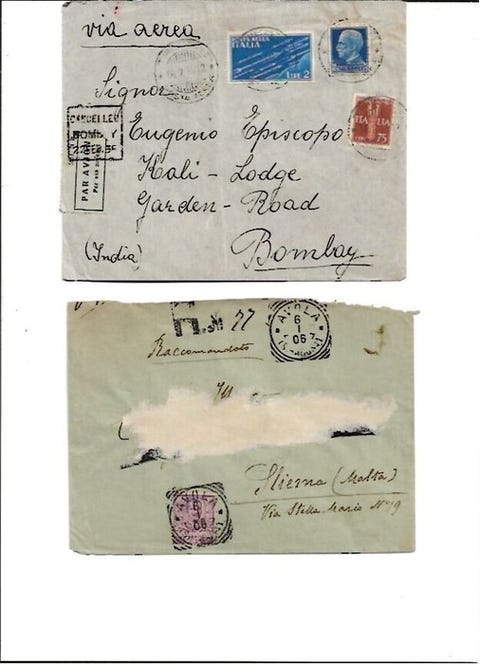 via aerea
POSTA AEREA
ITALIA
LIRE 2
ITALIA
75
Signor
CANCELLED
BOMBAY
PAR AVION
Eugenio Episcopo
Kali-Lodge
Garden-Road
(India)
Bombay
R. N 77
AVOLA
6
1
06
Raccomandato
Sliema (Malta)
Via Stella Maris No 19
AVOLA
6
1
06